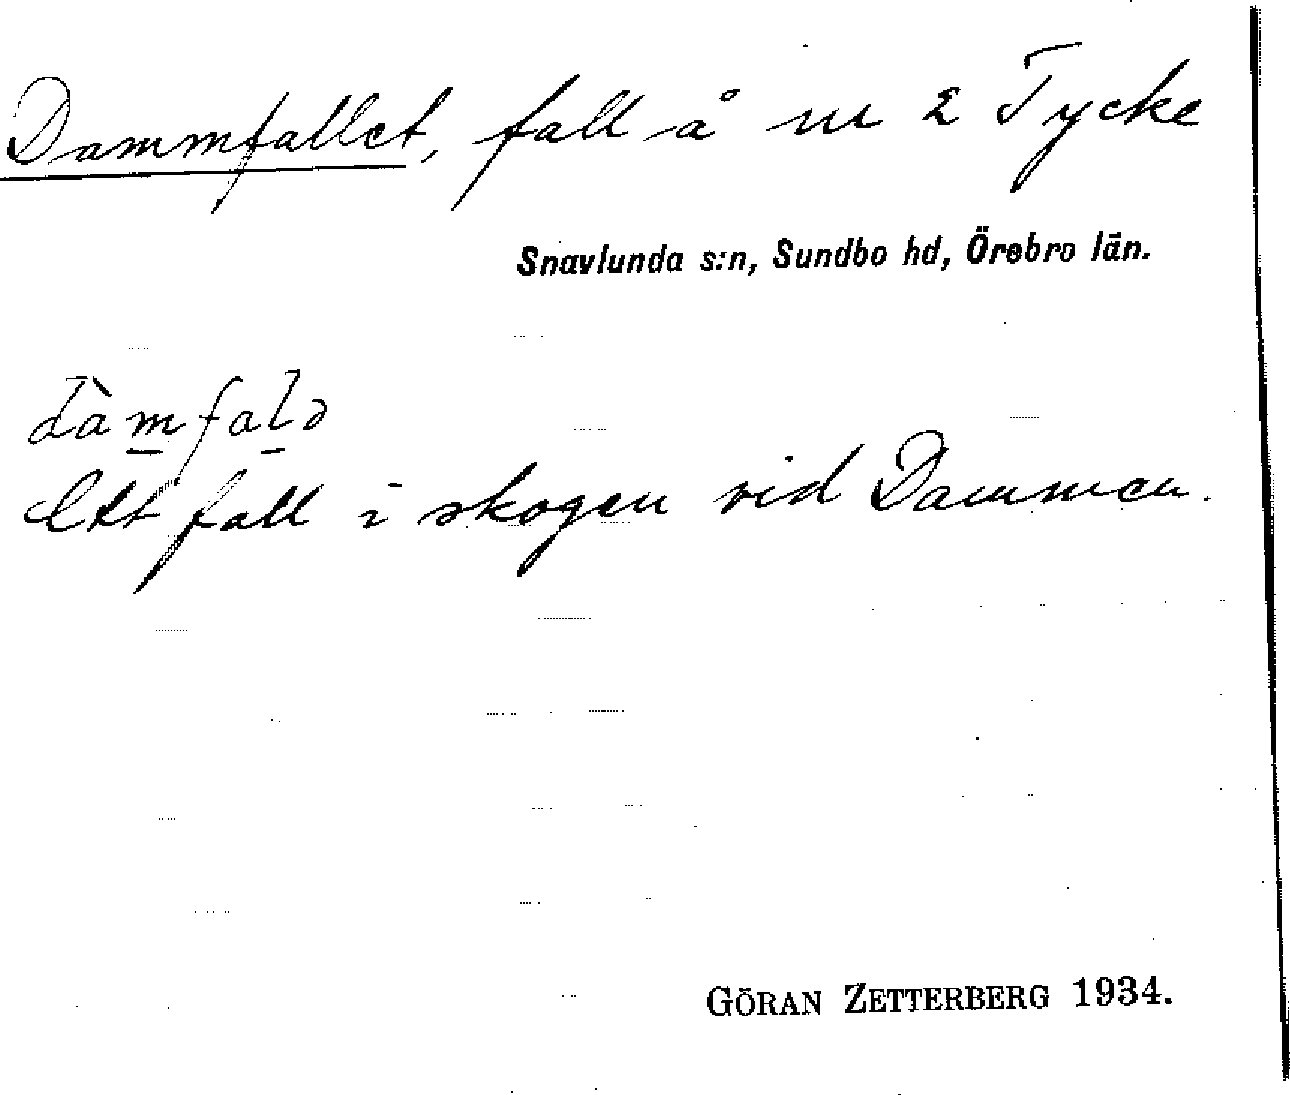 Dammfallet, fall å nr 2 Tycke
Snavlunda s:n, Sundbo hd, Örebro län.
dàmfalə
Ett fall i skogen vid Dammen.
GÖRAN ZETTERBERG 1934.